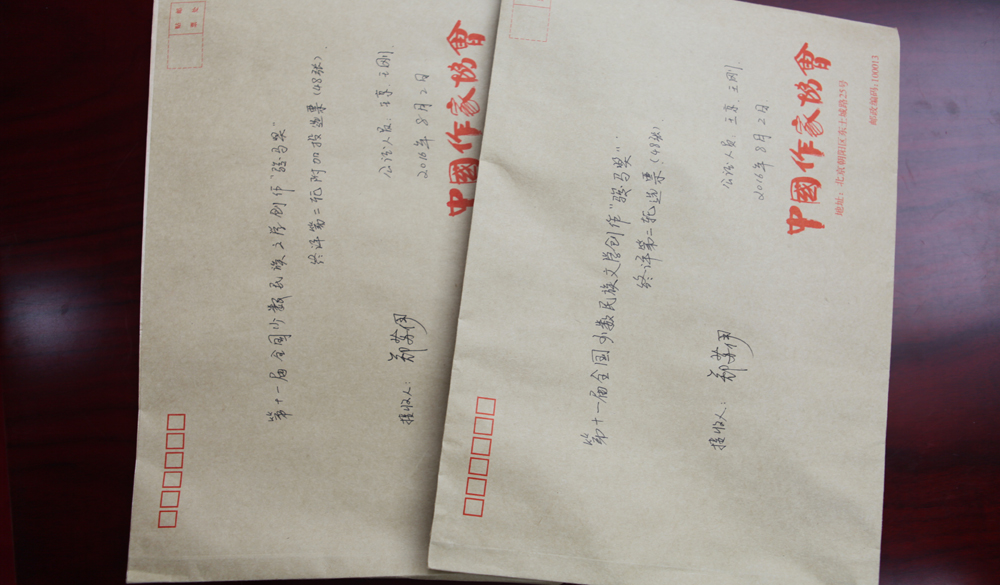 第十一届全国少数民族文学创作“骏马奖”
终评第二轮附加投选票(48张)
接收人:
公证人员:王京、王刚
2016年8月2日
中國作家協會
贴邮
票处
第十一届全国少数民族文学创作“骏马奖”
终评第二轮选票(48张)
接收人:
公证人员:王京、王刚
2016年8月2日
中國作家協會
地址:北京朝阳区东土城路25号
邮政编码:100013